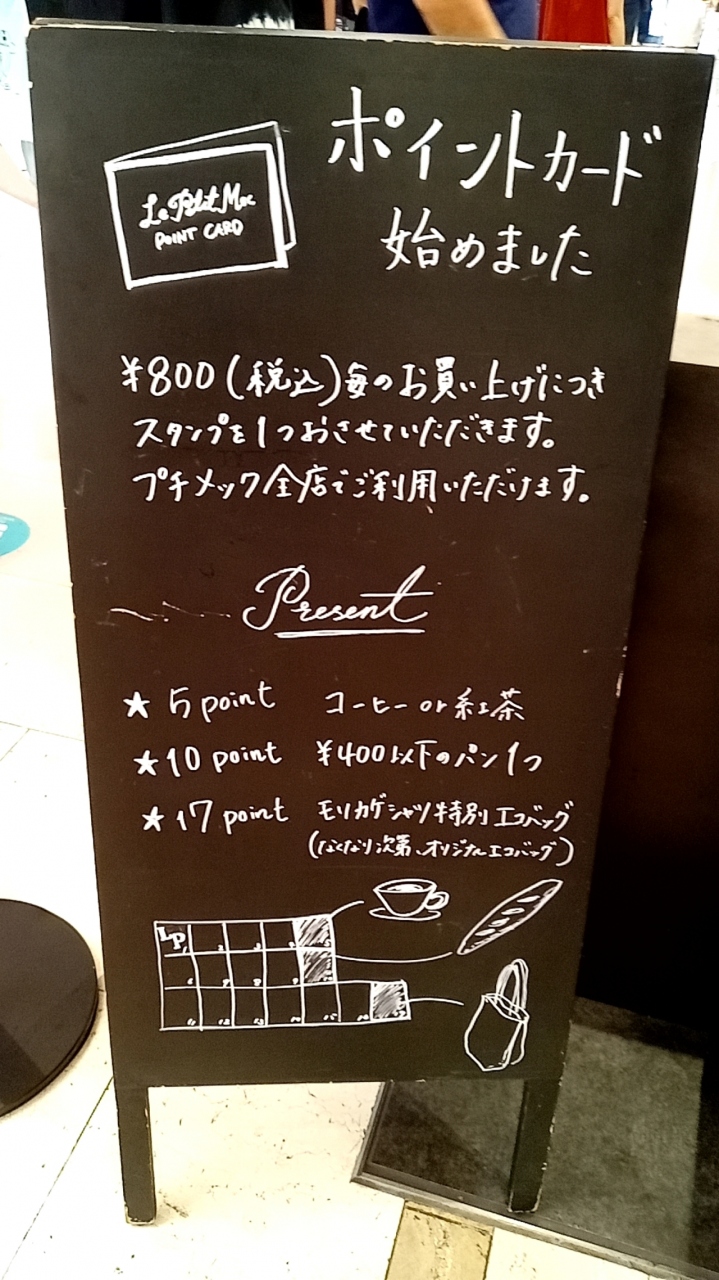 ポイントカード
始めました
Le Petit Mec
POINT CARD
¥800(税込)毎のお買い上げにつき
スタンプを1つおさせていただきます。
プチメック全店でご利用いただけます。
Present
★ 5 point コーヒー or 紅茶
★ 10 point ¥400以下のパン1つ
★ 17 point モリカゲシャツ特別エコバッグ
(なくなり次第、オリジナルエコバッグ)